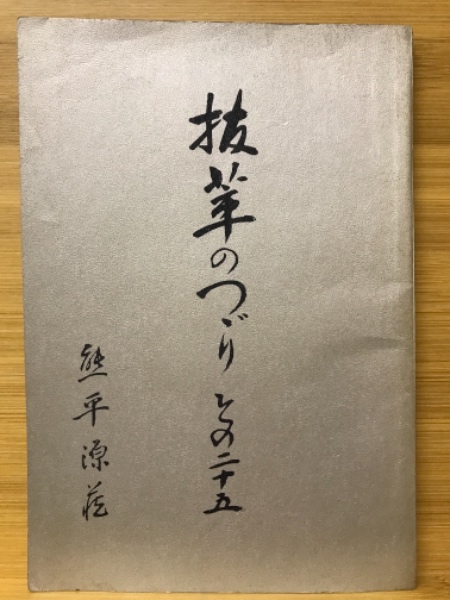 抜萃のつゞり その二十五
熊平源蔵